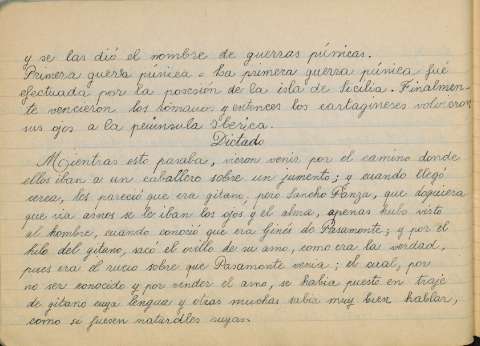 y se las dió el nombre de guerras púnicas.
Primera guerra púnica - La primera guerra púnica fué
efectuada por la posesión de la isla de Sicilia. Finalmen-
te vencieron los romanos y entonces los cartagineses volvieron
sus ojos a la península Ibérica.
Dictado
Mientras esto pasaba, vieron venir por el camino donde
ellos iban a un caballero sobre un jumento; y cuando llegó
cerca, les pareció que era gitano, pero Sancho Panza, que doquiera
que vía asnos se le iban los ojos y el alma, apenas hubo visto
al hombre, cuando conoció que era Ginés de Pasamonte; y por el
hilo del gitano, sacó el ovillo de su asno, como era la verdad,
pues era el rucio sobre que Pasamonte venía; el cual, por
no ser conocido y por vender el asno, se había puesto en traje
de gitano cuya lengua y otras muchas sabía muy bien hablar,
como si fuesen naturales suyas.